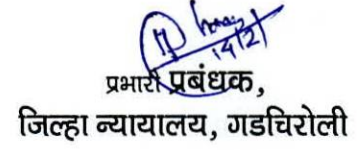 14/2
प्रभारी प्रबंधक,
जिल्हा न्यायालय, गडचिरोली